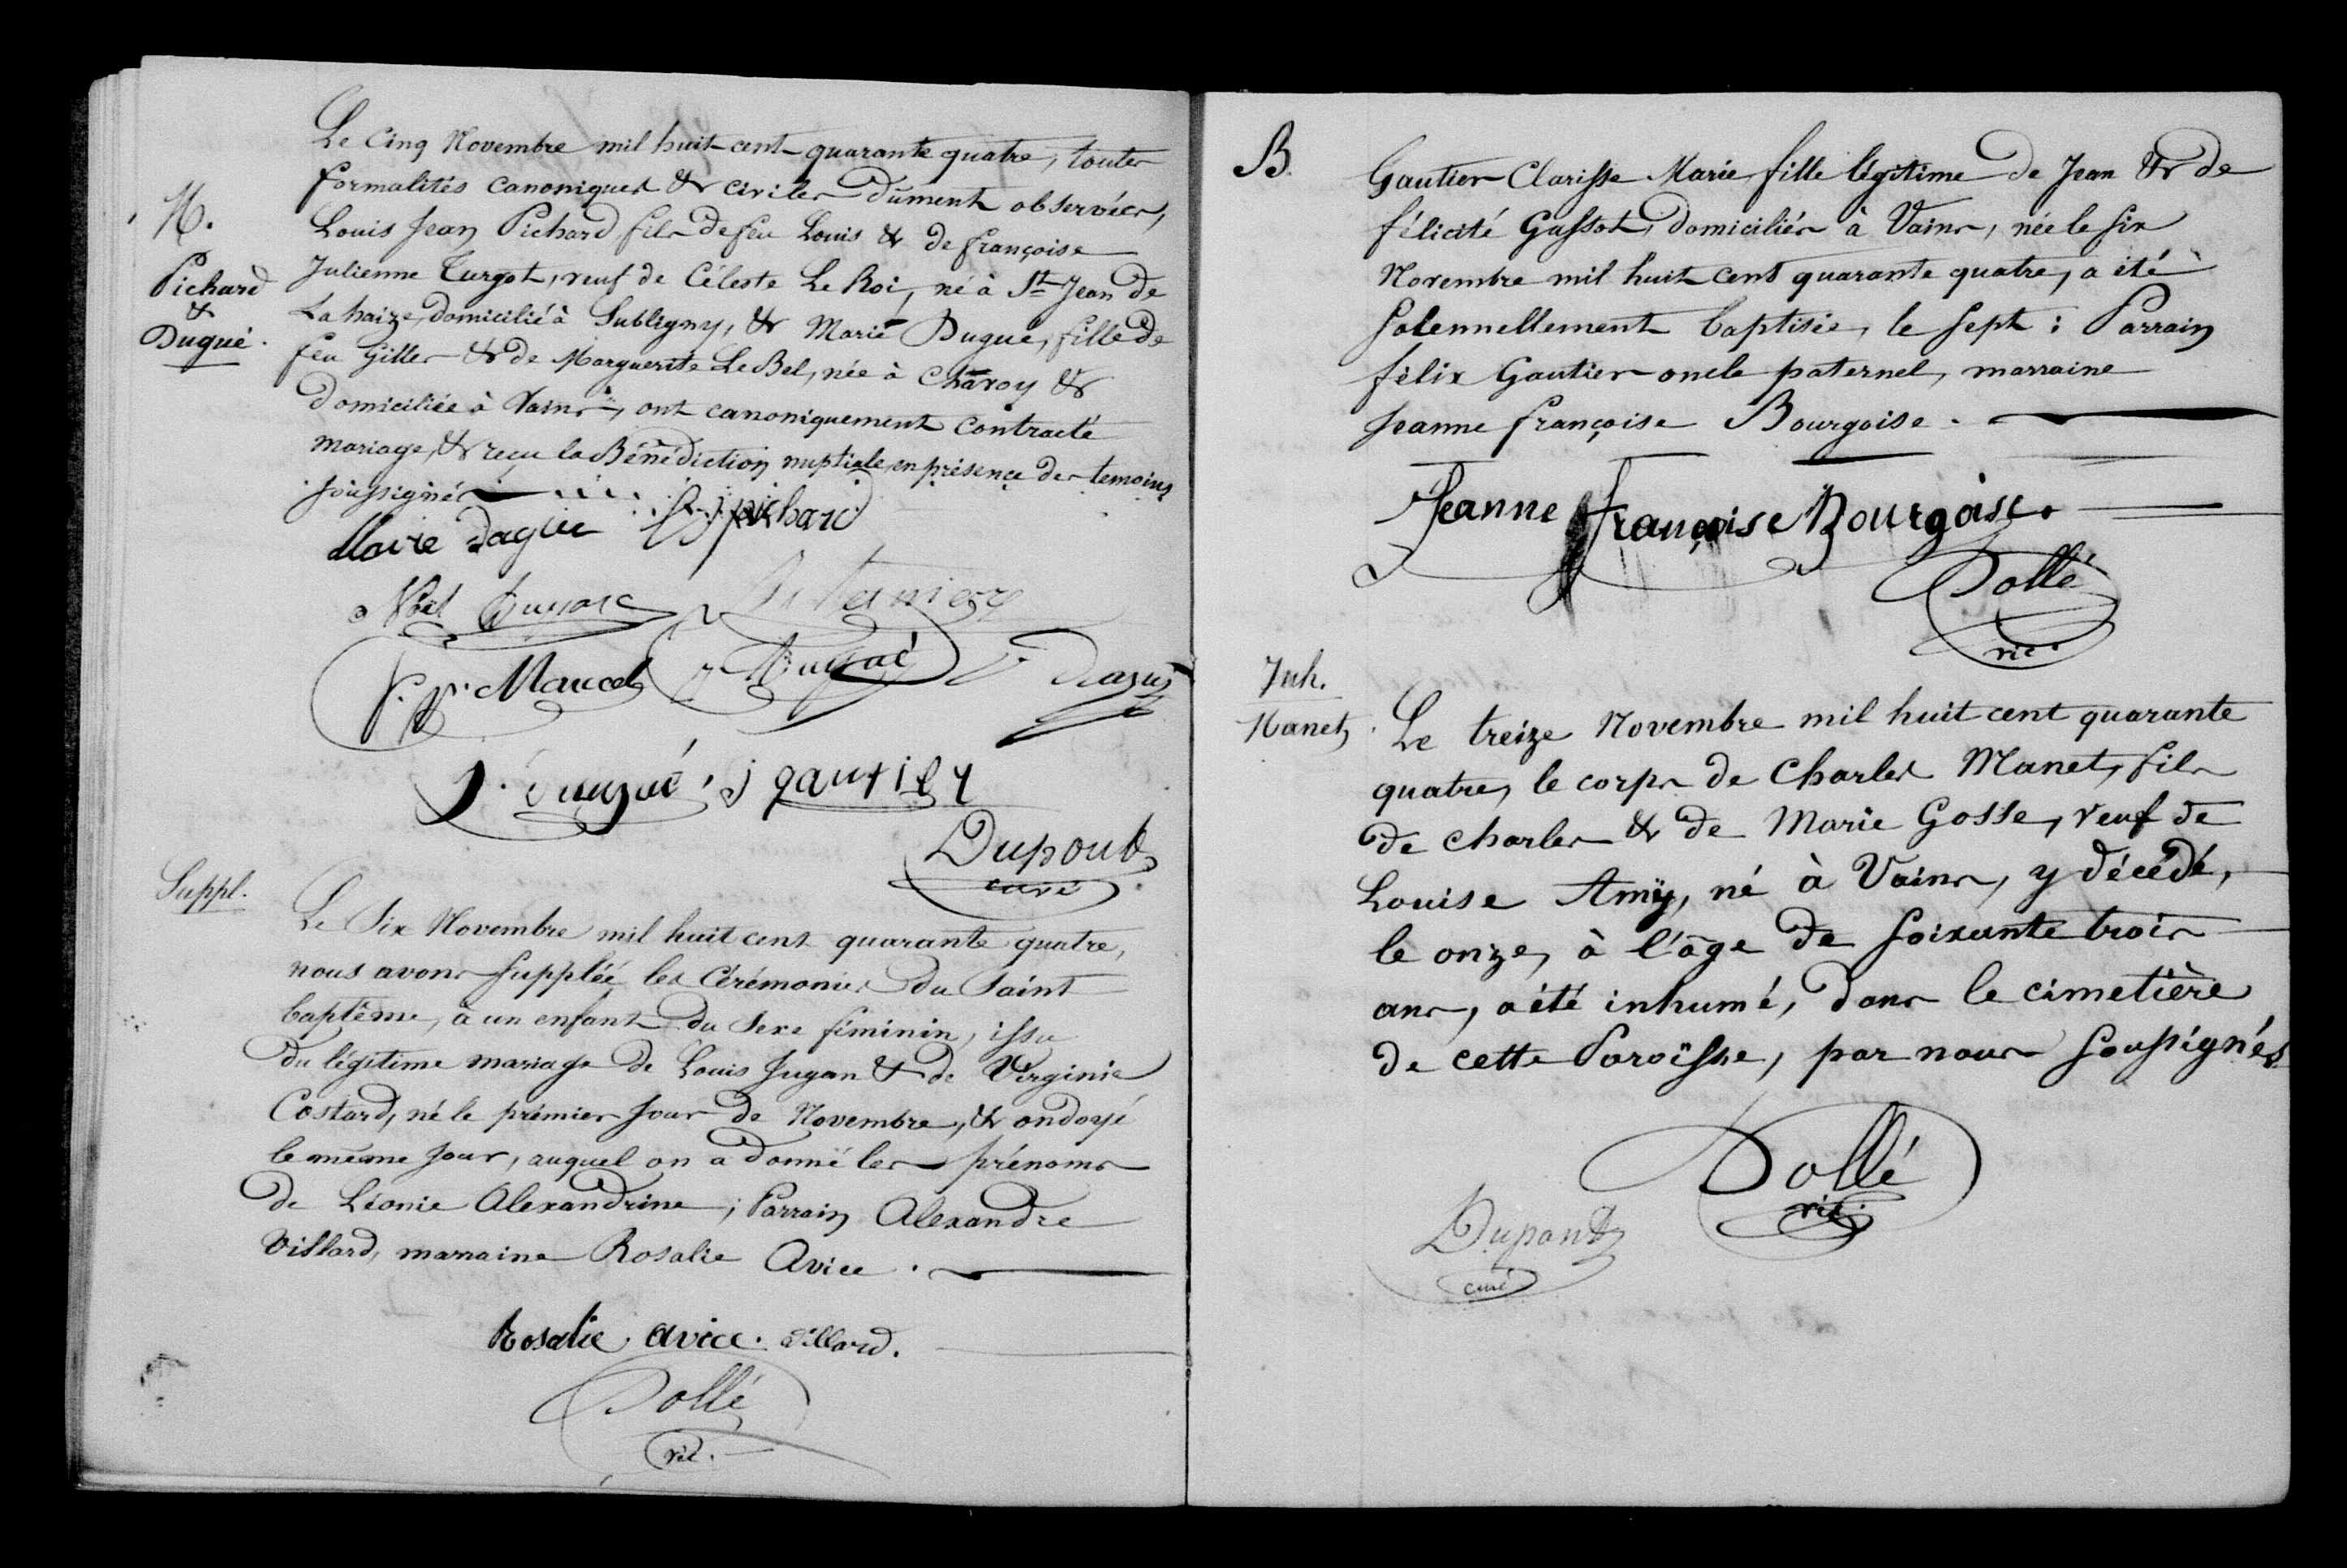 M.
Pichard
&
Dugué.
Le Cinq Novembre mil huit cent quarante quatre, toutes
formalités canoniques & civiles dûment observées,
Louis Jean Pichard fils de feu Louis & de françoise
Julienne Turgot, veuf de Céleste Le Roi, né à St Jean de
La haize, domicilié à Subligny, & Marie Dugué, fille de
feu Gilles & de Marguerite Le Bel, née à Chavoy &
domiciliée à Vains, ont canoniquement contracté
mariage, & reçu la Bénédiction nuptiale, en présence des temoins
soussignés
Marie Dague L J pichard
Noel
J. p. Marcel
J. gautier
Dupont
curé
Suppl.
Le Six Novembre mil huit cent quarante quatre,
nous avons suppléé les Cérémonies du Saint
baptême, à un enfant du Sexe féminin, issu
du légitime mariage de Louis Jugan & de Virginie
Costard, né le prémier Jour de Novembre, & ondoyé
le même Jour, auquel on a donné les prénoms
de Léonie Alexandrine ; Parrain Alexandre
Villard, marraine Rosalie Avice.
Rosalie avice. Villard.
Dollé
vic.
B.
Gautier Clarisse Marie fille légitime de Jean & de
félicité Gassot, domiciliés à Vains, née le six
Novembre mil huit cent quarante quatre, a été
Solennellement baptisée, le sept : Parrain
félix Gautier oncle paternel, marraine
Jeanne françoise Bourgoise.
Jeanne françoise Bourgoise.
Dollé
vic.
Inh.
Manet
Le treize Novembre mil huit cent quarante
quatre, le corps de Charles Manet, fils
de Charles & de Marie Gosse, veuf de
Louise Amÿ, né à Vains, y décédé,
le onze, à l'âge de soixante trois
ans, a été inhumé, dans le cimetière
de cette Paroïsse, par nous soussignés
Dollé
vic.
Dupont
curé